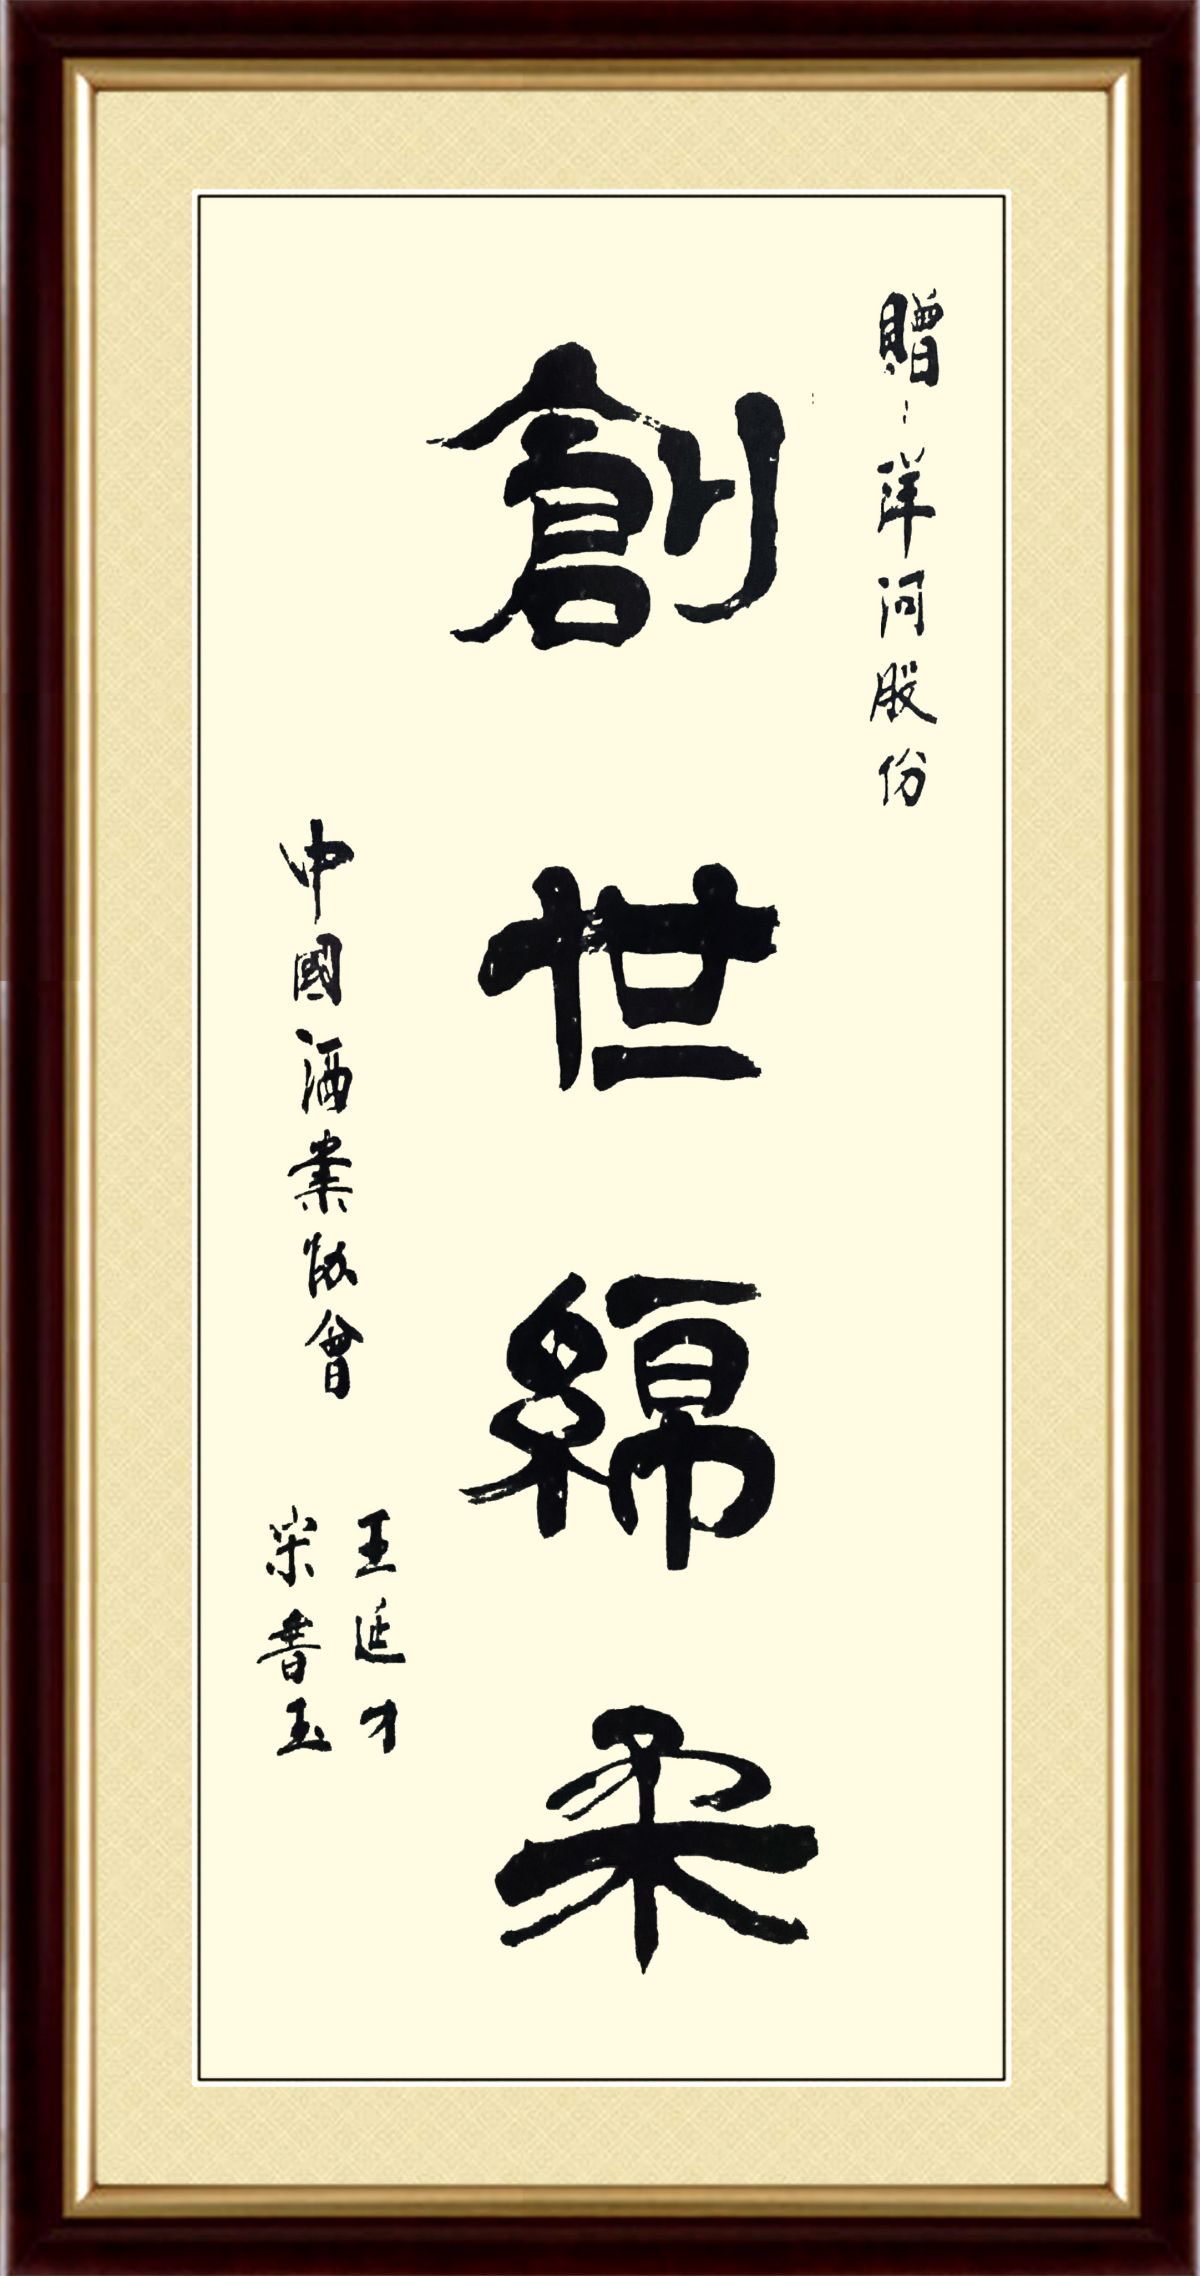 贈：洋河股份
創世綿柔
中國酒業協會
王延才
宋書玉